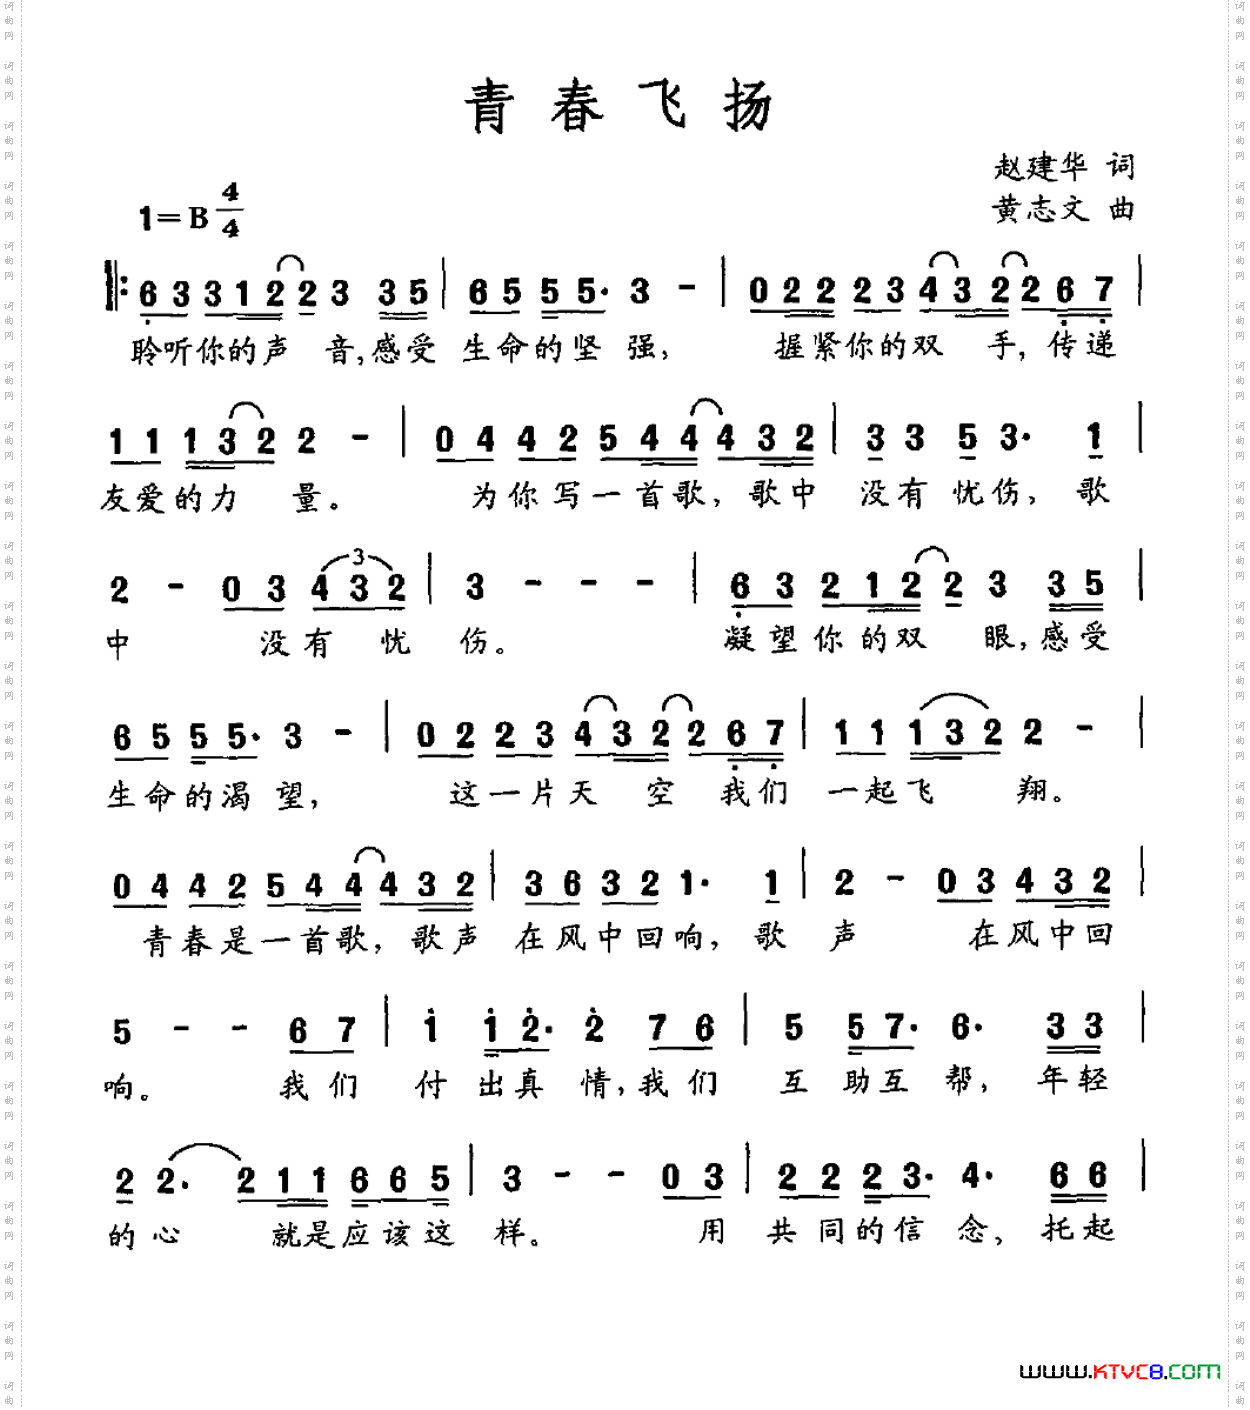 青春飞扬
赵建华 词
1=B 4/4
黄志文 曲
6 3 3 1 2 2 3 3 5 | 6 5 5 5· 3 - | 0 2 2 2 3 4 3 2 2 6 7 |
聆听你的声 音,感受 生命的坚 强, 握紧你的双 手,传递
1 1 1 3 2 2 - | 0 4 4 2 5 4 4 4 3 2 | 3 3 5 3· 1 |
友爱的力 量。 为你写一首歌,歌中 没有忧伤,歌
3
2 - 0 3 4 3 2 | 3 - - - | 6 3 2 1 2 2 3 3 5 |
中 没有 忧 伤。 凝望你的双 眼,感受
6 5 5 5· 3 - | 0 2 2 3 4 3 2 2 6 7 | 1 1 1 3 2 2 - |
生命的渴 望, 这一片天 空 我们 一起飞 翔。
0 4 4 2 5 4 4 4 3 2 | 3 6 3 2 1· 1 | 2 - 0 3 4 3 2 |
青春是一首歌,歌声 在风中回响,歌 声 在风中回
5 - - 6 7 | 1 1 2· 2 7 6 | 5 5 7· 6· 3 3 |
响。 我们 付 出真 情,我们 互 助互 帮,年轻
2 2· 2 1 1 6 6 5 | 3 - - 0 3 | 2 2 2 3· 4· 6 6 |
的心 就是应该这 样。 用 共同的信 念,托起
www.KTVC8.COM